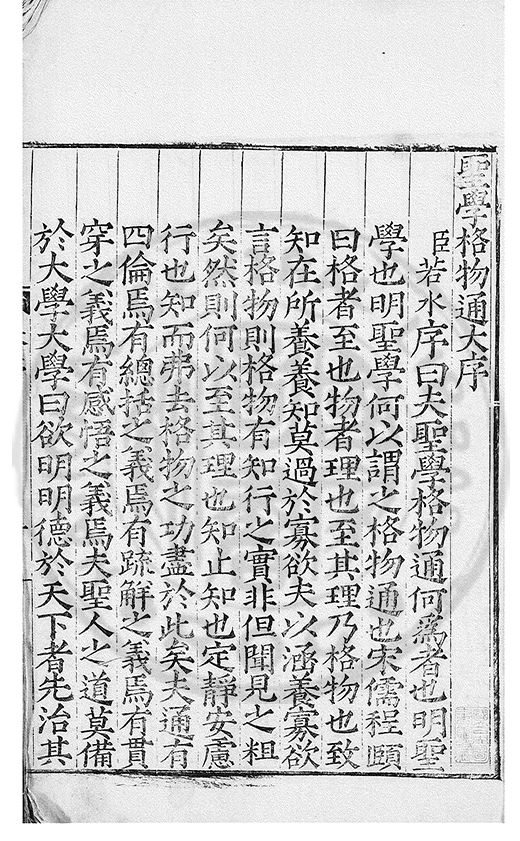 聖學格物通大序
臣若水序曰夫聖學格物通何為者也明聖
學也明聖學何以謂之格物通也宋儒程頤
曰格者至也物者理也至其理乃格物也致
知在所養養知莫過於寡欲夫以涵養寡欲
言格物則格物有知行之實非但聞見之粗
矣然則何以至其理也知止知也定靜安慮
行也知而弗去格物之功盡於此矣夫通有
四倫焉有總括之義焉有疏解之義焉有貫
穿之義焉有感悟之義焉夫聖人之道莫備
於大學大學曰欲明明德於天下者先治其